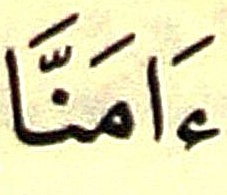 ءَامَنَّا